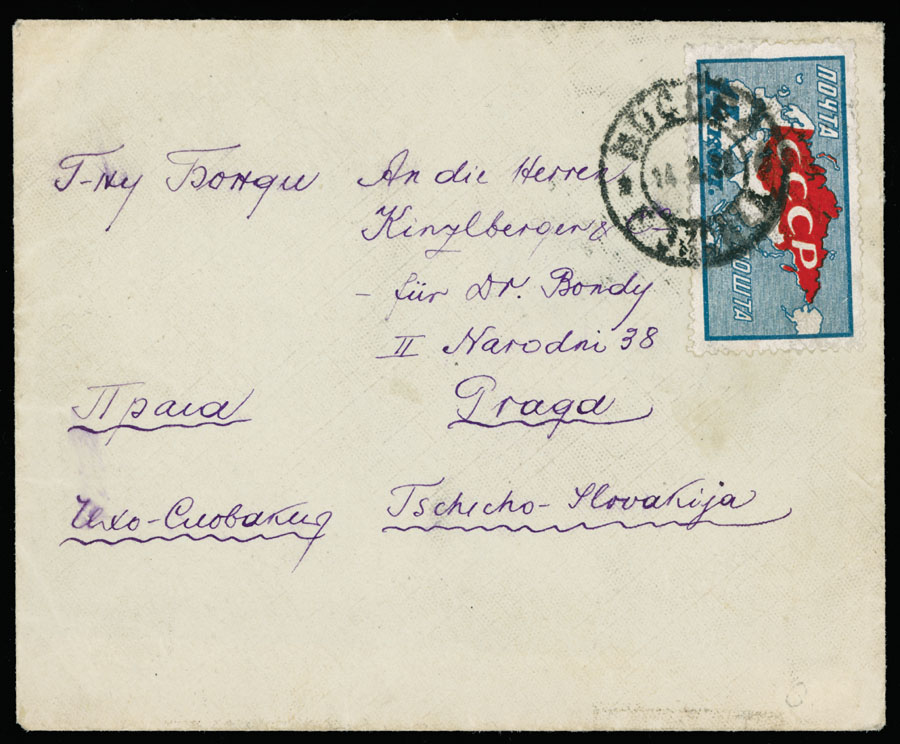 Г-ну Бонди
Прага
Чехо-Словакия
An die Herren
Kinzlberger &
- für Dr. Bondy
II Narodni 38
Praga
Tschecho-Slovakija
ПОЧТА
СССР
ПОШТА
14